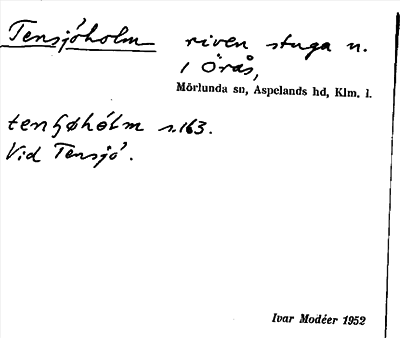 Tensjöholm riven stuga n.
i Örås,
Mörlunda sn, Aspelands hd, Klm. l.
tenʃøhólm s.163.
Vid Tensjö.
Ivar Modéer 1952